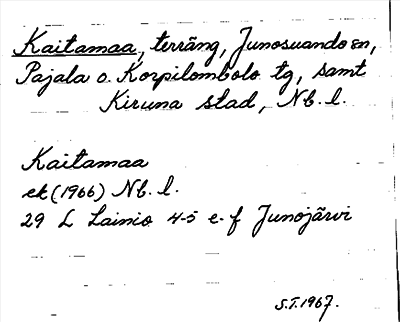 Kaitamaa, terräng, Junosuando sn,
Pajala o. Korpilombolo tg, samt
Kiruna stad, Nb. l.
Kaitamaa
ek (1966) Nb. l.
29 L Lainio 4-5 e-f Junojärvi
S.T. 1967.